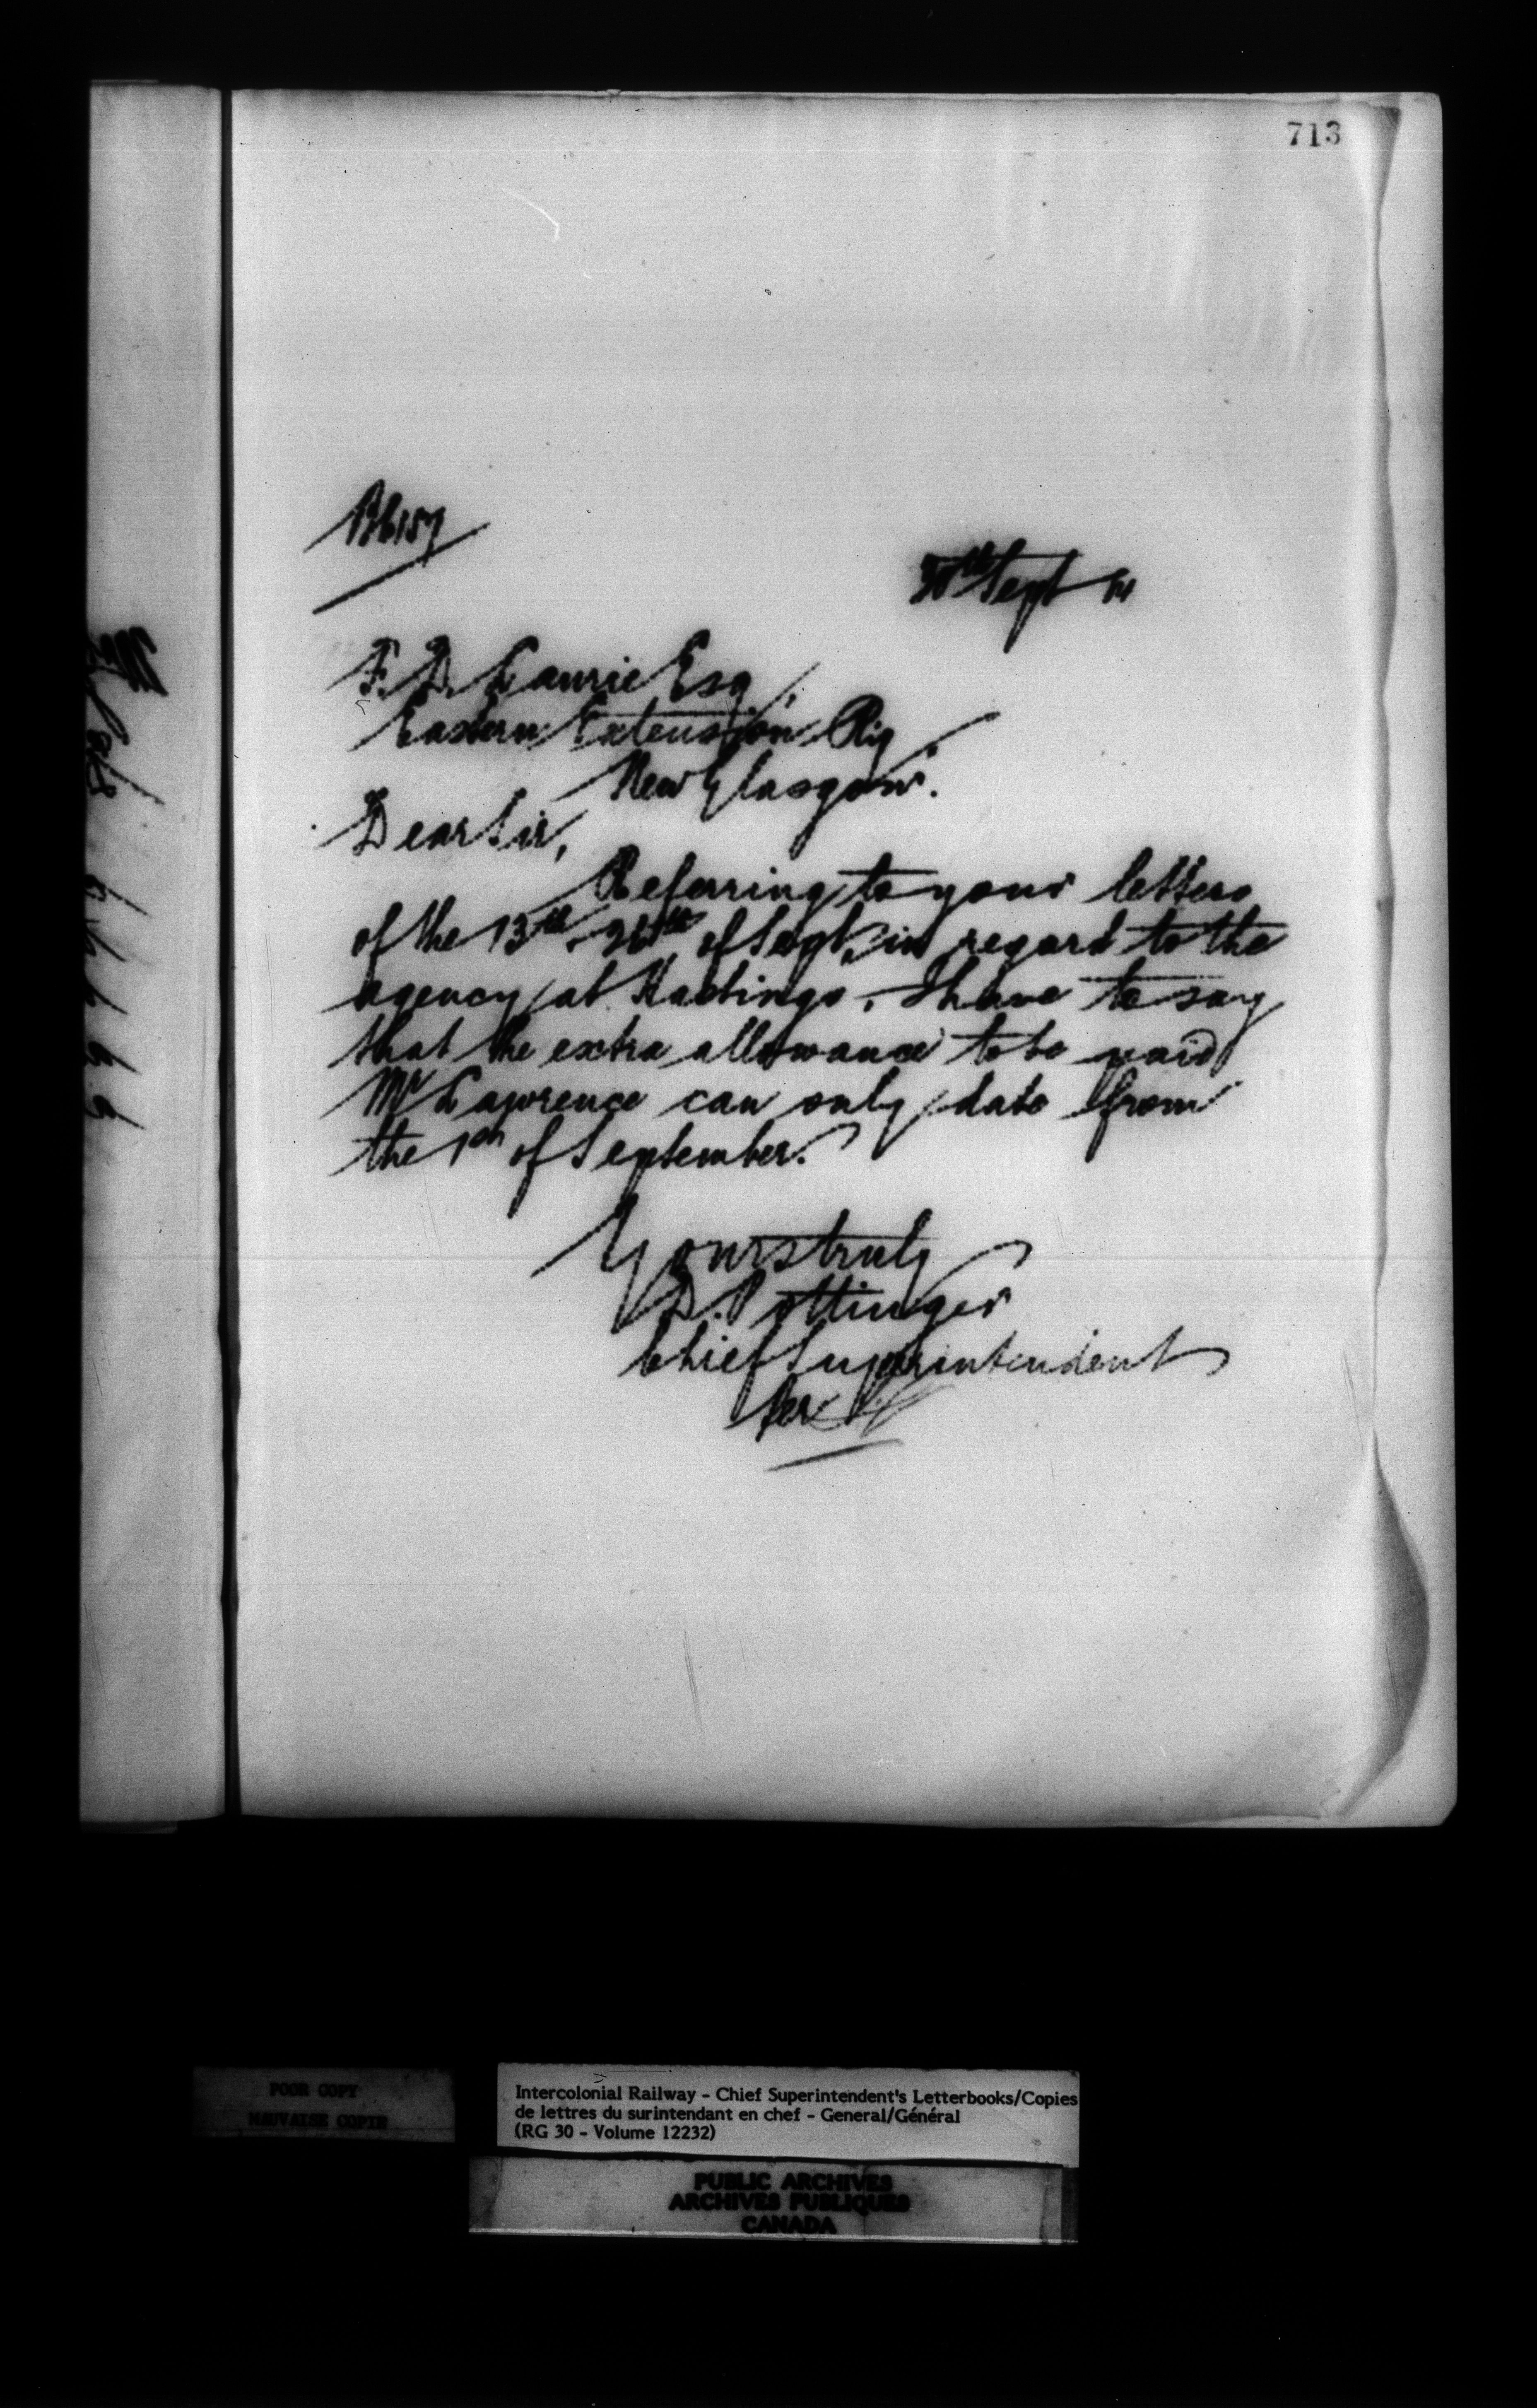 713
30th Sept
F. D. Laurie Esq.
Eastern Extension Rly
New Glasgow.
Dear Sir,
Referring to your letters
of the 13th & 26th of Sept. in regard to the
agency at Hastings, I have to say
that the extra allowance to be paid
Mr Lawrence can only date from
the 1st of September.
Yours truly
D. Pottinger
Chief Superintendent
Per
POOR COPY
MAUVAISE COPIE
Intercolonial Railway - Chief Superintendent's Letterbooks/Copies
de lettres du surintendant en chef - General/Général
(RG 30 - Volume 12232)
PUBLIC ARCHIVES
ARCHIVES PUBLIQUES
CANADA